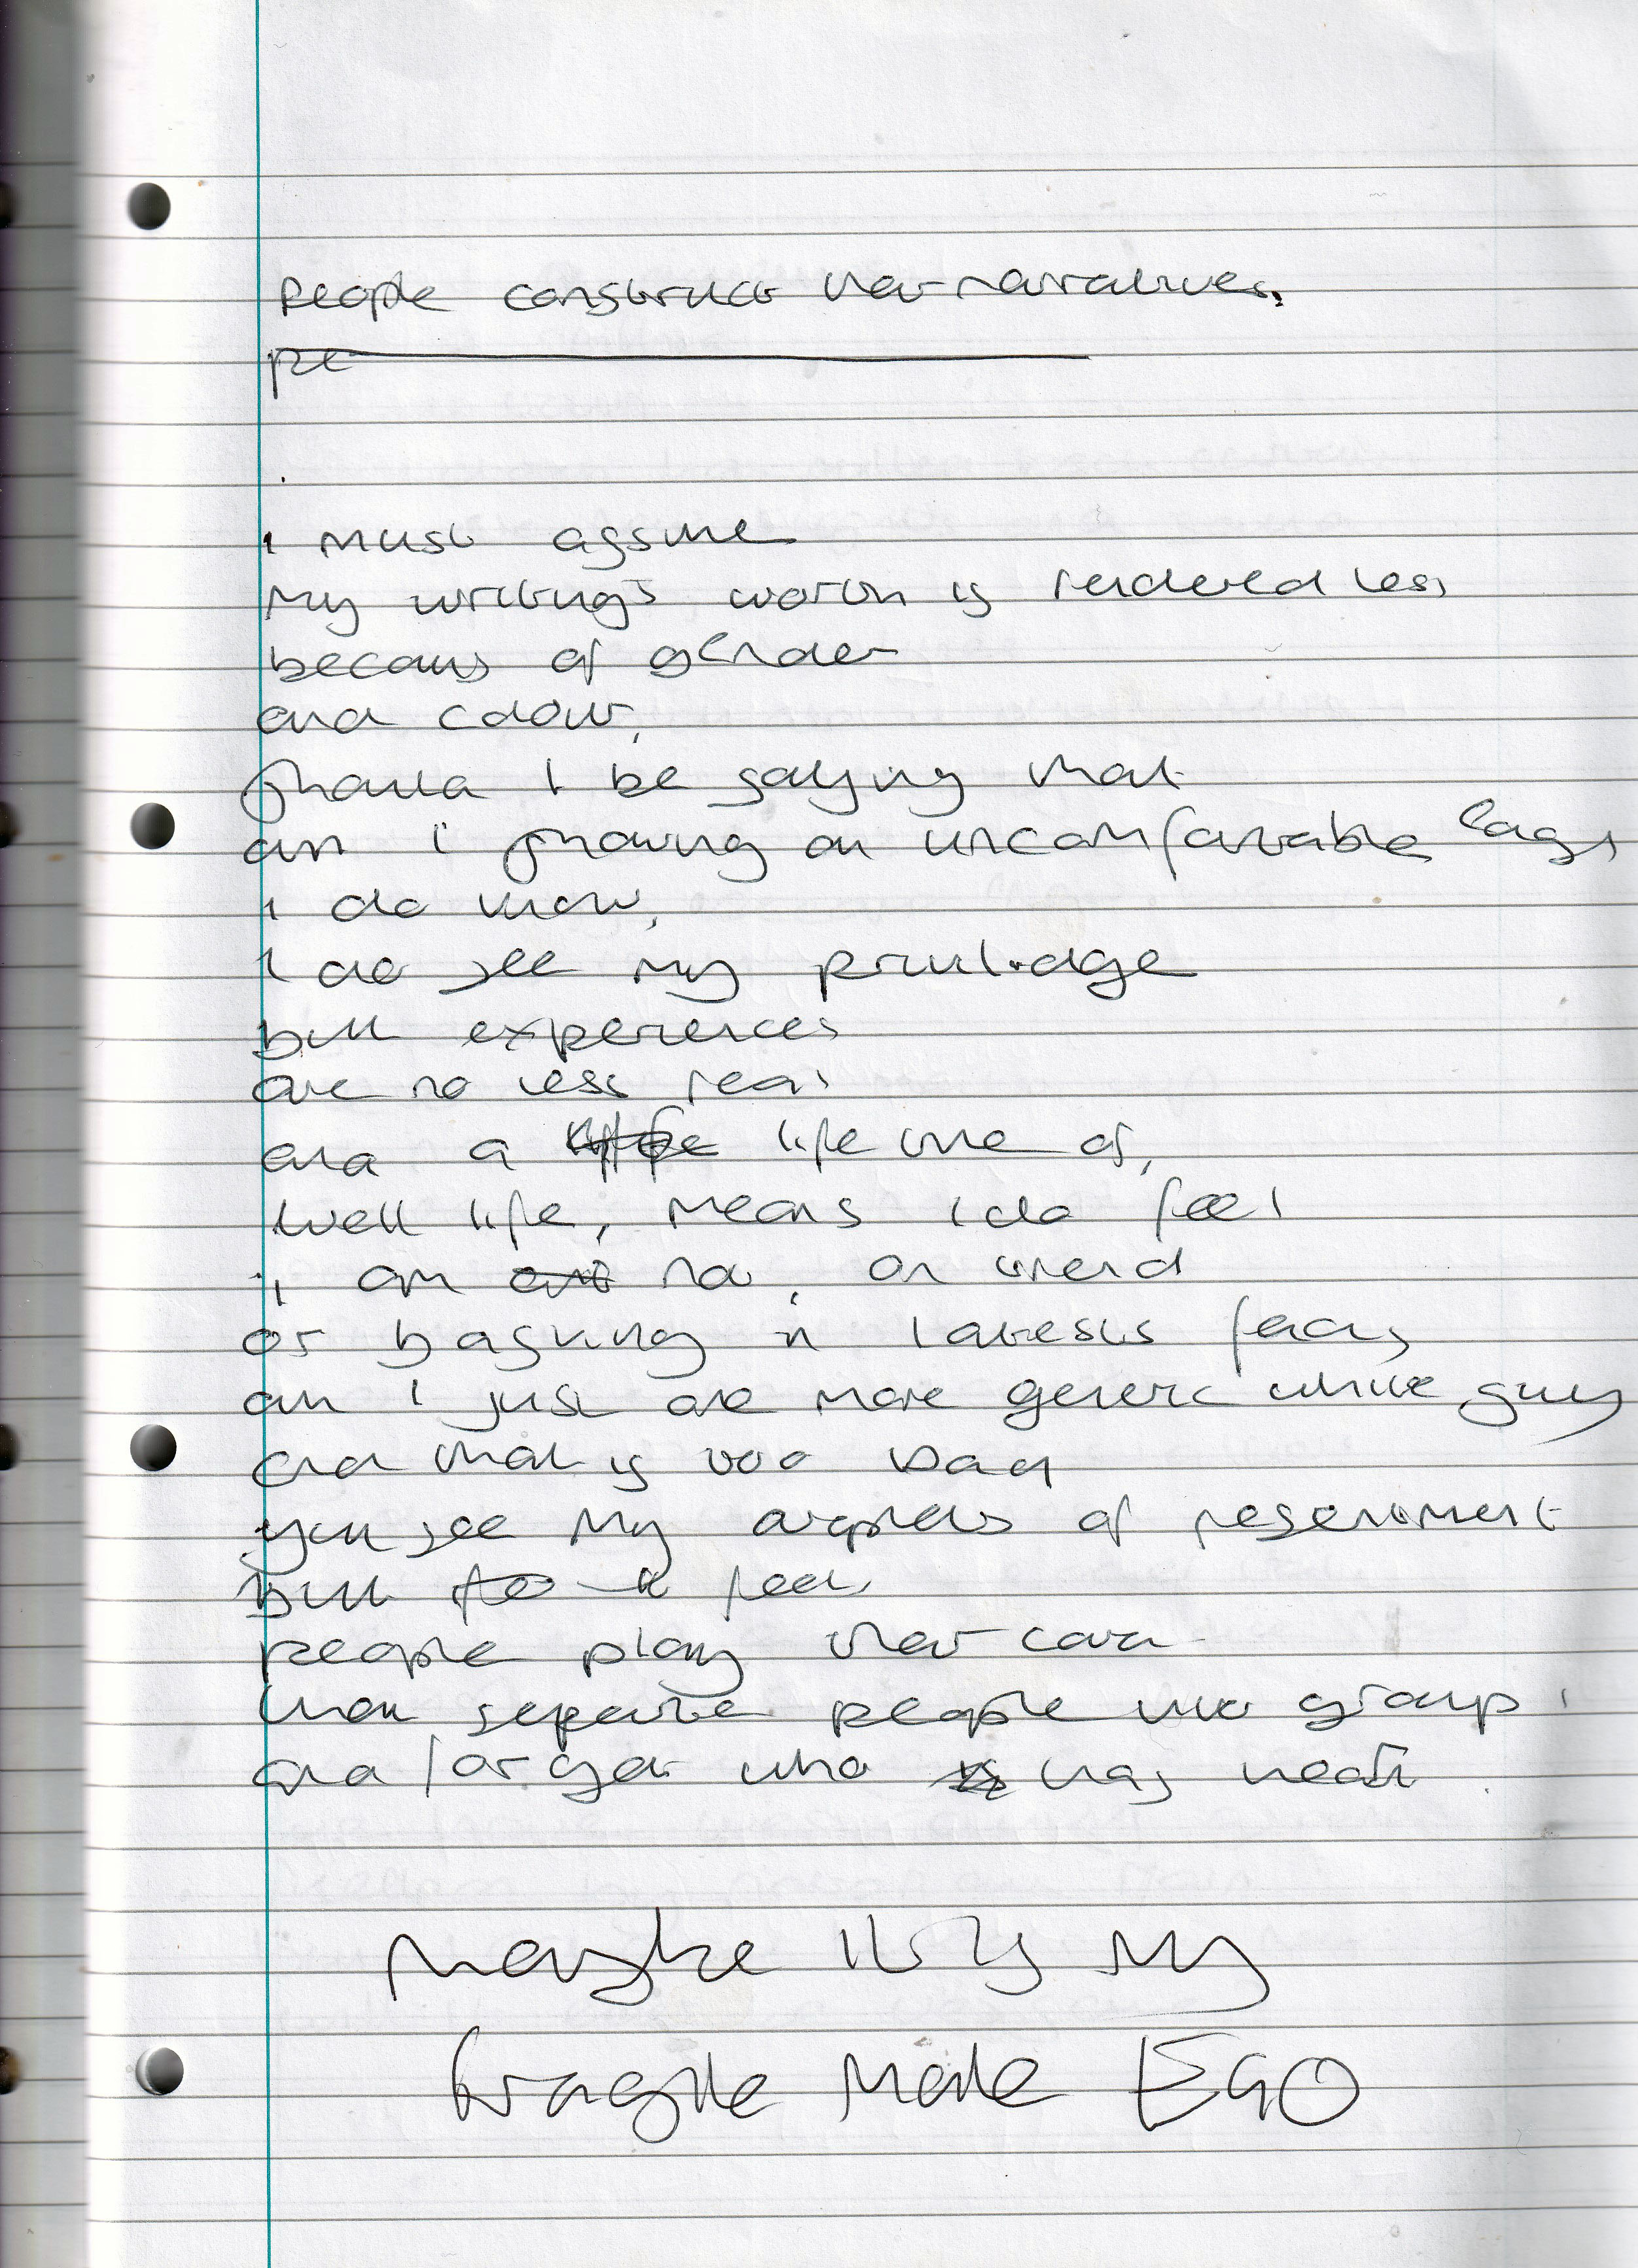 People construct their narratives.
pe
I must assume
my writing's worth is rendered less
becaus of gender
and colour,
should I be saying that
am i showing an uncomfortable
i do know,
I do see my privilidge
but experiences
are no less real
and a life time of,
well life, means I do feel
i, am not, on trend
or basking in latests fads
am I just one more generic white guy
and that is too bad
you see my of resentment
but feel
people play their card
then seperate people into groups
and forget who has heart.
Maybe it is my
fragile Male EGO